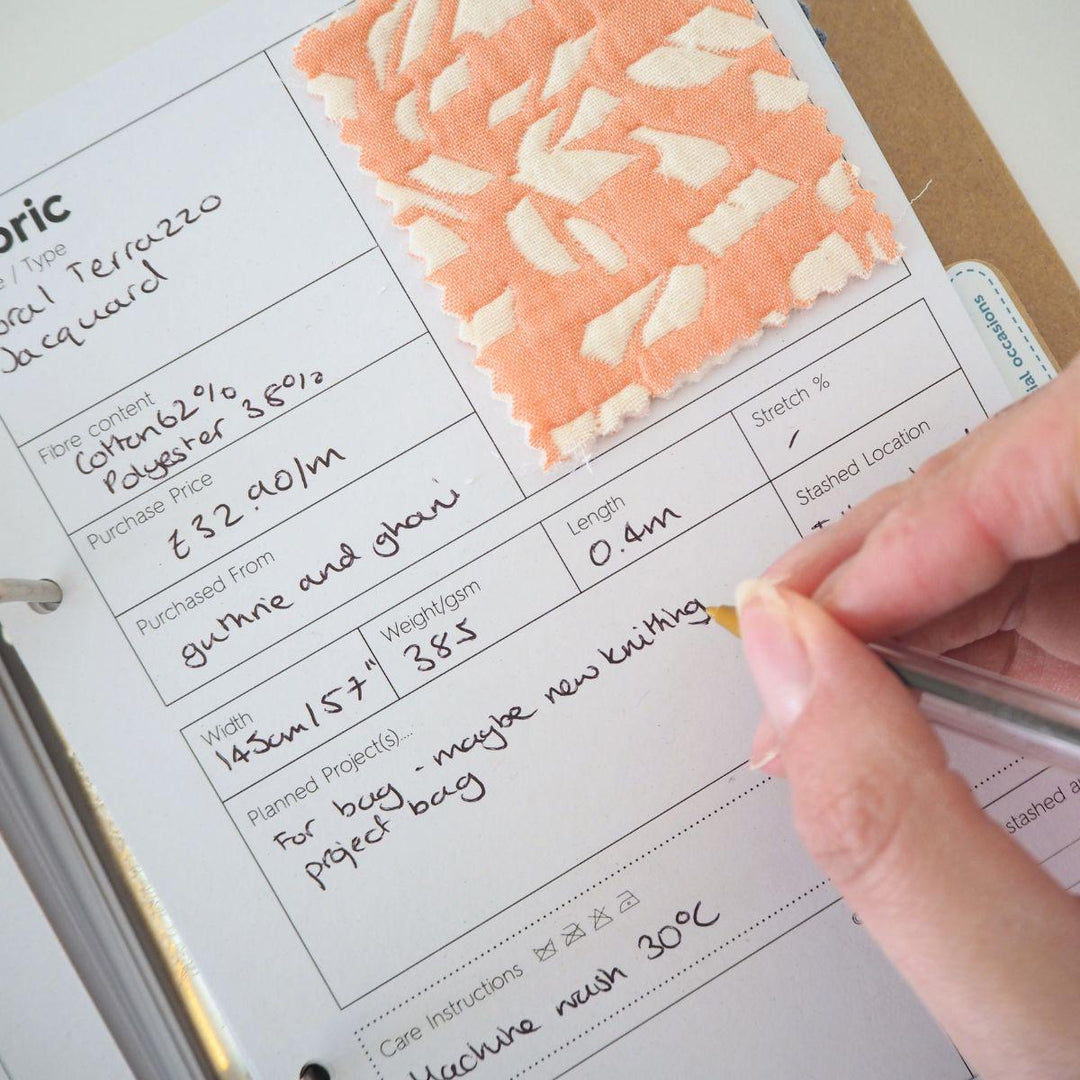 bric
e / Type
oral Terrazzo
Jacquard
Fibre content
Cotton 62%
Polyester 38%
Purchase Price
£32.90/m
Purchased From
guthrie and ghani
Width
145cm/57"
Weight/gsm
385
Length
0.4m
Stretch %
/
Stashed Location
Planned Project(s)....
For bag - maybe new knitting
project bag
Care Instructions
Machine wash 30°C
stashed a
ial occasions